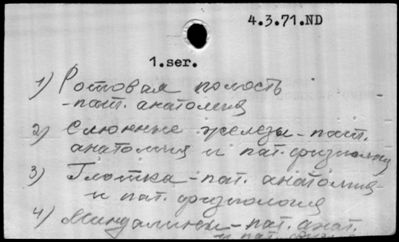 4.3.71.ND
1.ser.
1) Ротовая полость
-пат. анатомия
2) Слюнные железы-пат.
анатомия и пат. физиология
3) Глотка-пат. анатомия
и пат. физиология
4) Миндалины-пат. анат.
и пат.